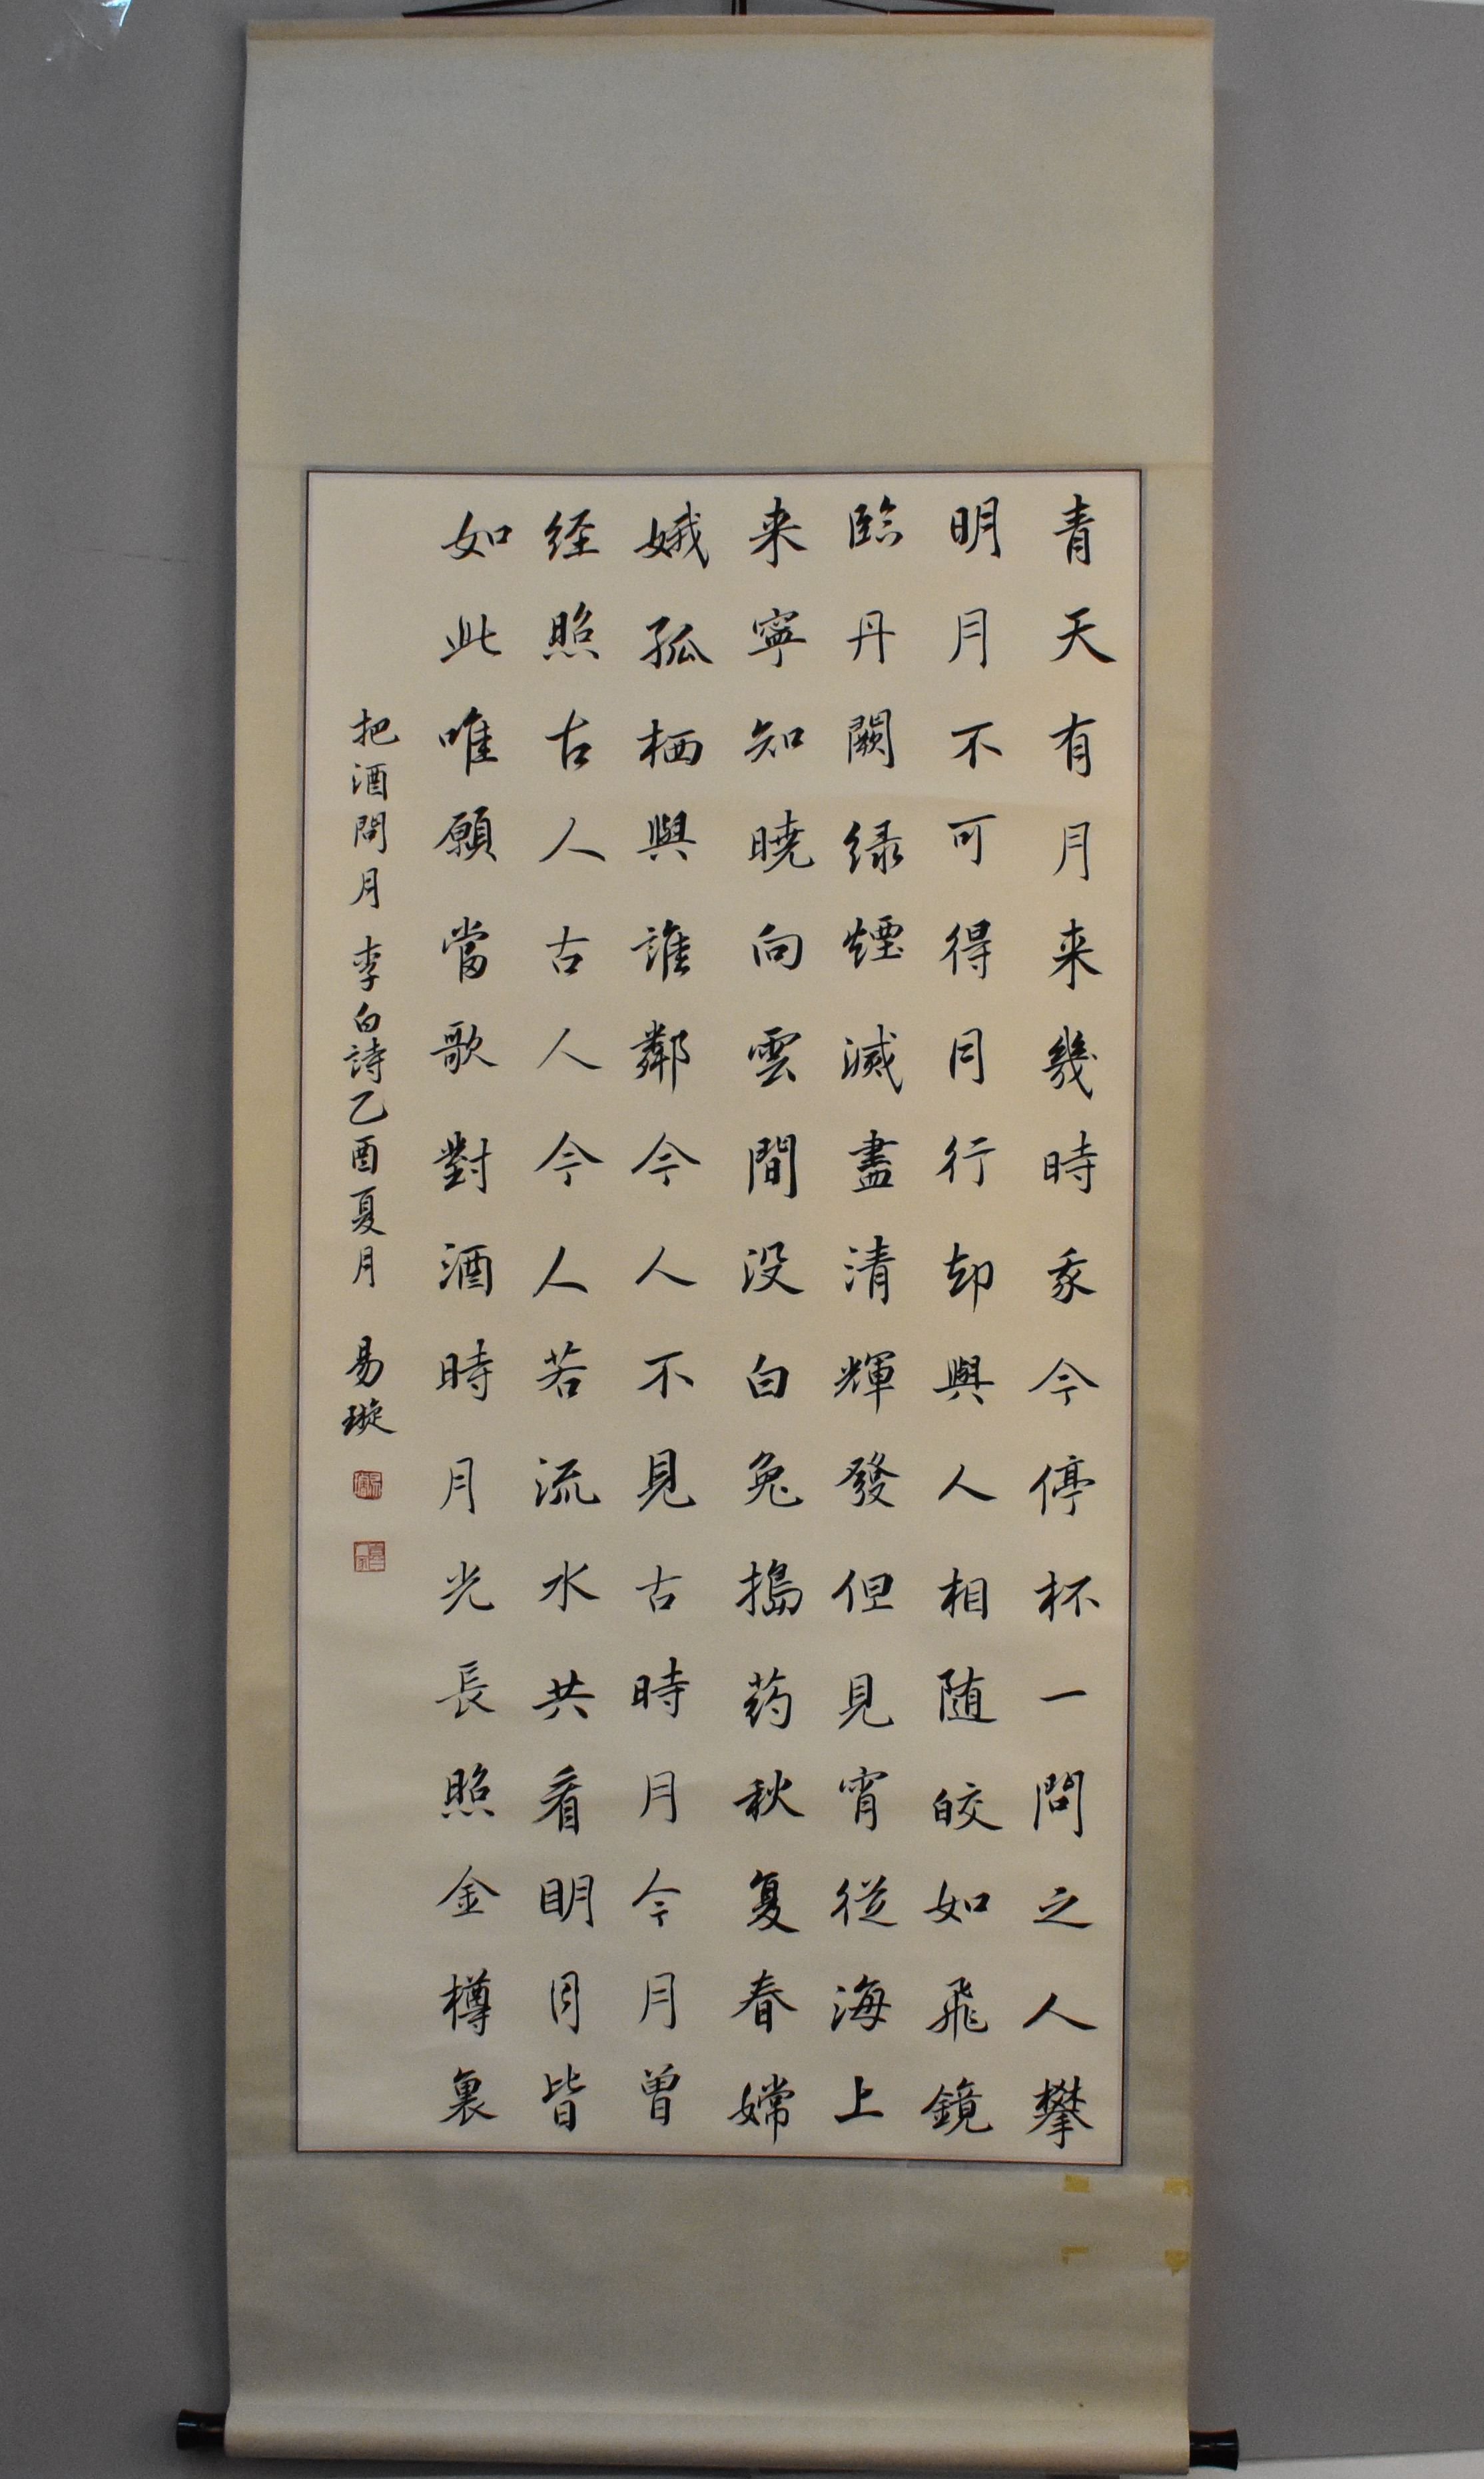 青天有月来幾時我今停杯一問之人攀
明月不可得月行却與人相随皎如飛鏡
臨丹闕緑煙滅盡清輝發但見宵從海上
来寧知曉向雲間没白兔搗药秋复春嫦
娥孤栖與誰鄰今人不見古時月今月曾
经照古人古人今人若流水共看明月皆
如此唯願當歌對酒時月光長照金樽裏
把酒問月李白詩乙酉夏月 易璇